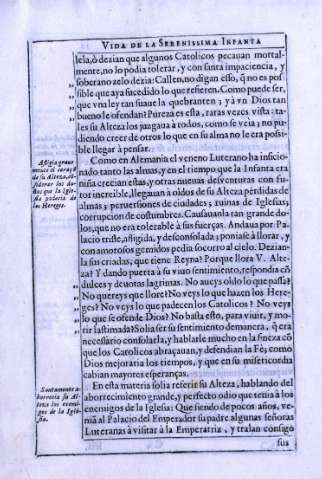 VIDA DE LA SERENISSIMA INFANTA
lela, ò dezian que algunos Catolicos pecauan mortal-
mente, no lo podia tolerar, y con santa impaciencia, y
soberano zelo dezia: Callen, no digan esso, q̃ no es pos
sible que aya sucedido lo que refieren. Como puede ser,
que vna ley tan suaue la quebranten; y à vn Dios tan
bueno le ofendan? Pureza es esta, raras vezes vista: ta-
les su Alteza los juzgaua à todos, como se veia; no pu-
diendo creer de otros lo que en su alma no le era possi-
ble llegar à pensar.
Afligia graue
mente el coraçõ
de su Alteza, cõ
siderar los da-
ños que la Igle
sia padecia de
los Hereges.
Como en Alemania el veneno Luterano ha inficio-
nado tanto las almas, y en el tiempo que la Infanta era
niña crecian estas, y otras nueuas desventuras con fu-
ror increible, llegauan à oîdos de su Alteza pérdidas de
almas; peruersiones de ciudades; ruinas de Iglesias;
corrupcion de costumbres. Causauanla tan grande do-
lor, que no era tolerable à sus fuerças. Andaua por Pa-
lacio triste, afligida, y desconsolada; poniase à llorar, y
con amorosos gemidos pedia socorro al cielo. Dezian-
la sus criadas, que tiene Reyna? Porque llora V. Alte-
za? Y dando puerta à su viuo sentimiento, respondia cõ
dulces y deuotas lagrimas. No aueys oîdo lo que passa?
No quereys que llore? No veys lo que hazen los Here-
ges? No veys lo que padecen los Catolicos? No veys
lo que se ofende Dios? No basta esto, para viuir, y mo-
rir lastimada? Solia ser su sentimiento de manera, q̃ era
necessario consolarla, y hablarle mucho en la fineza cõ
que los Catolicos abraçauan, y defendian la Fè; como
Dios mejoraria los tiempos, y que en su misericordia
cabian mayores esperanças.
Santamente a-
borrecia su Al-
teza los enemi-
gos de la Igle-
sia.
En esta materia solia referir su Alteza, hablando del
aborrecimiento grande, y perfecto odio que tenia à los
enemigos de la Iglesia: Que siendo de pocos años, ve-
niã al Palacio del Emperador su padre algunas señoras
Luteranas à visitar à la Emperatriz, y traîan consigo
sus